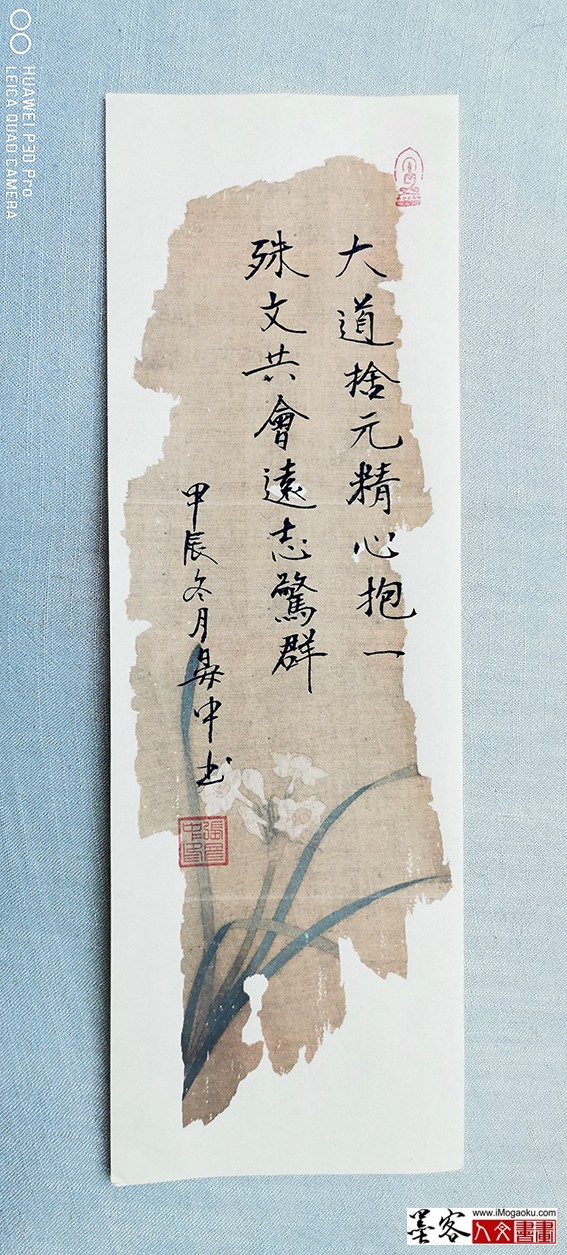 大道捨元精心抱一
殊文共會遠志驚群
甲辰冬月中书
HUAWEI P30 Pro
LEICA QUAD CAMERA
墨客
www.iMogaoku.com
人文書畫